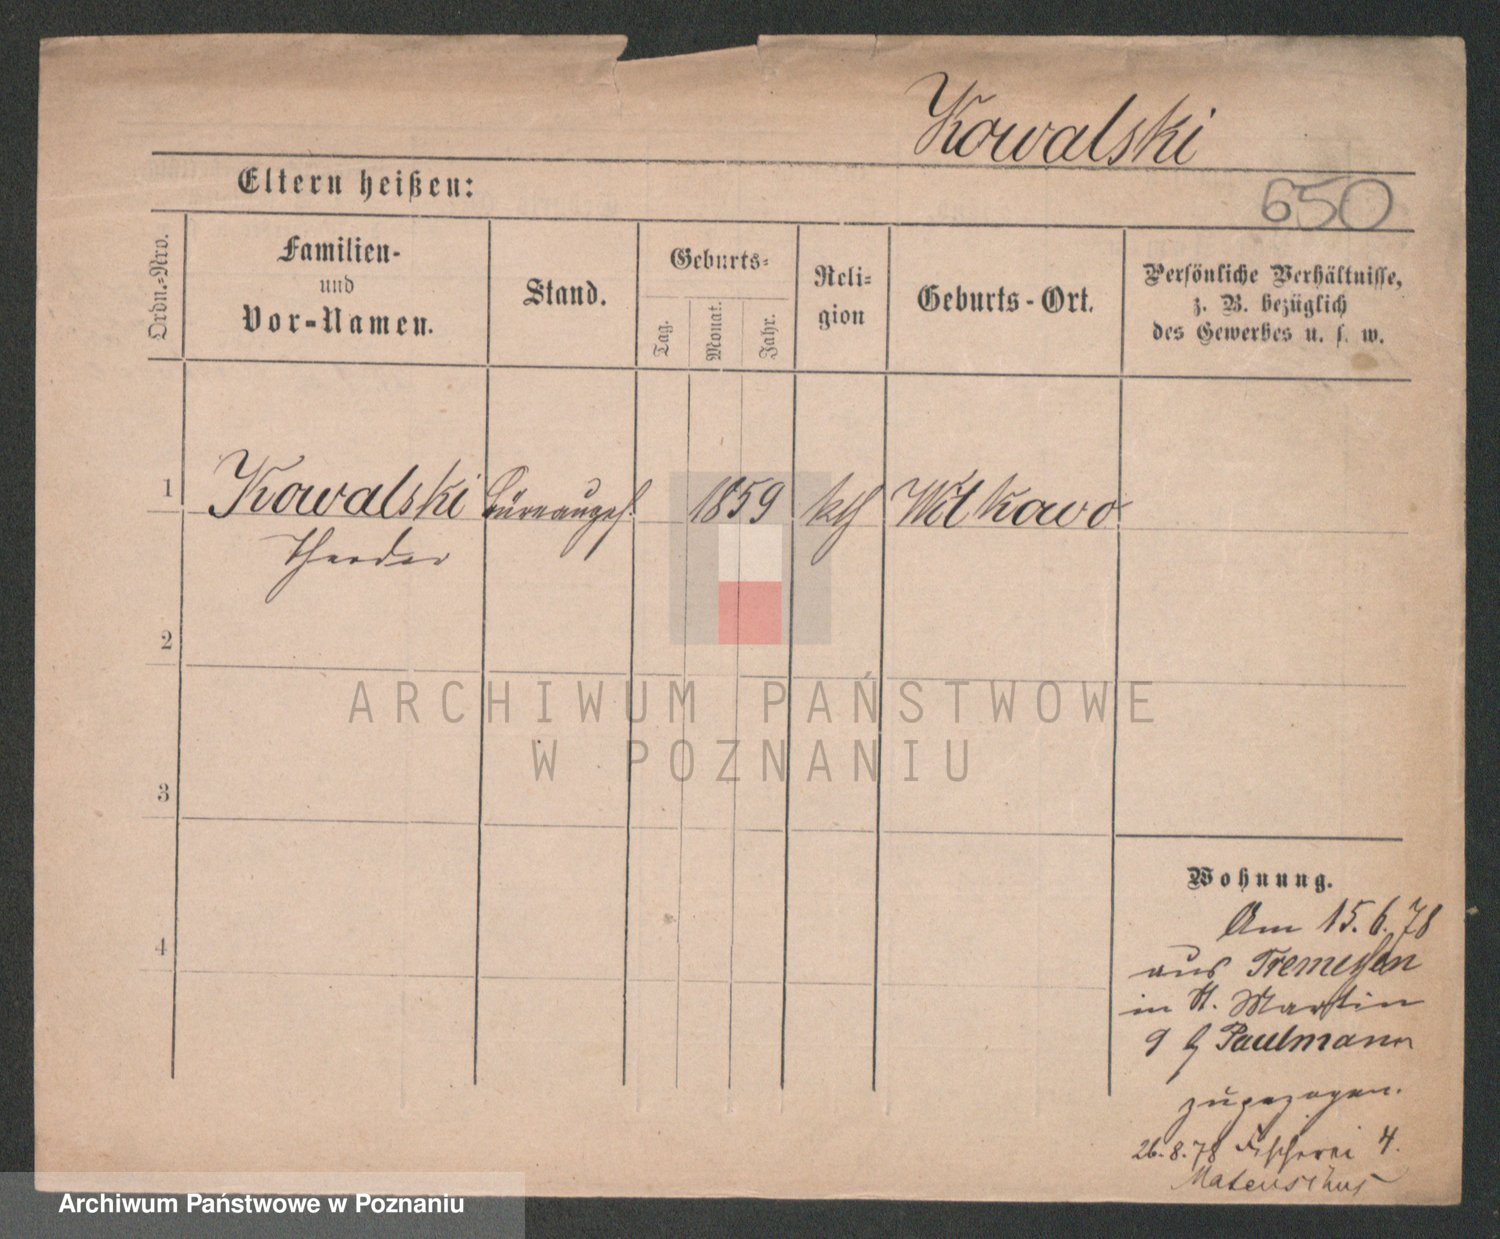 Kowalski
Eltern heißen:
650
Ordn.-Nro.
Familien-
und
Vor-Namen.
Stand.
Geburts-
Tag.
Monat.
Jahr.
Reli-
gion
Geburts-Ort.
Persönliche Verhältnisse,
z. B. bezüglich
des Gewerbes u. s. w.
1 Kowalski Büreaugeh. 1859 kth Witkowo
Theodor
2
3
4
Wohnung.
Am 15.6.78
aus Tremessen
in St. Martin
9 b Paulmann
zugezogen.
26.8.78 Fischerei 4.
ARCHIWUM PAŃSTWOWE
W POZNANIU
Archiwum Państwowe w Poznaniu